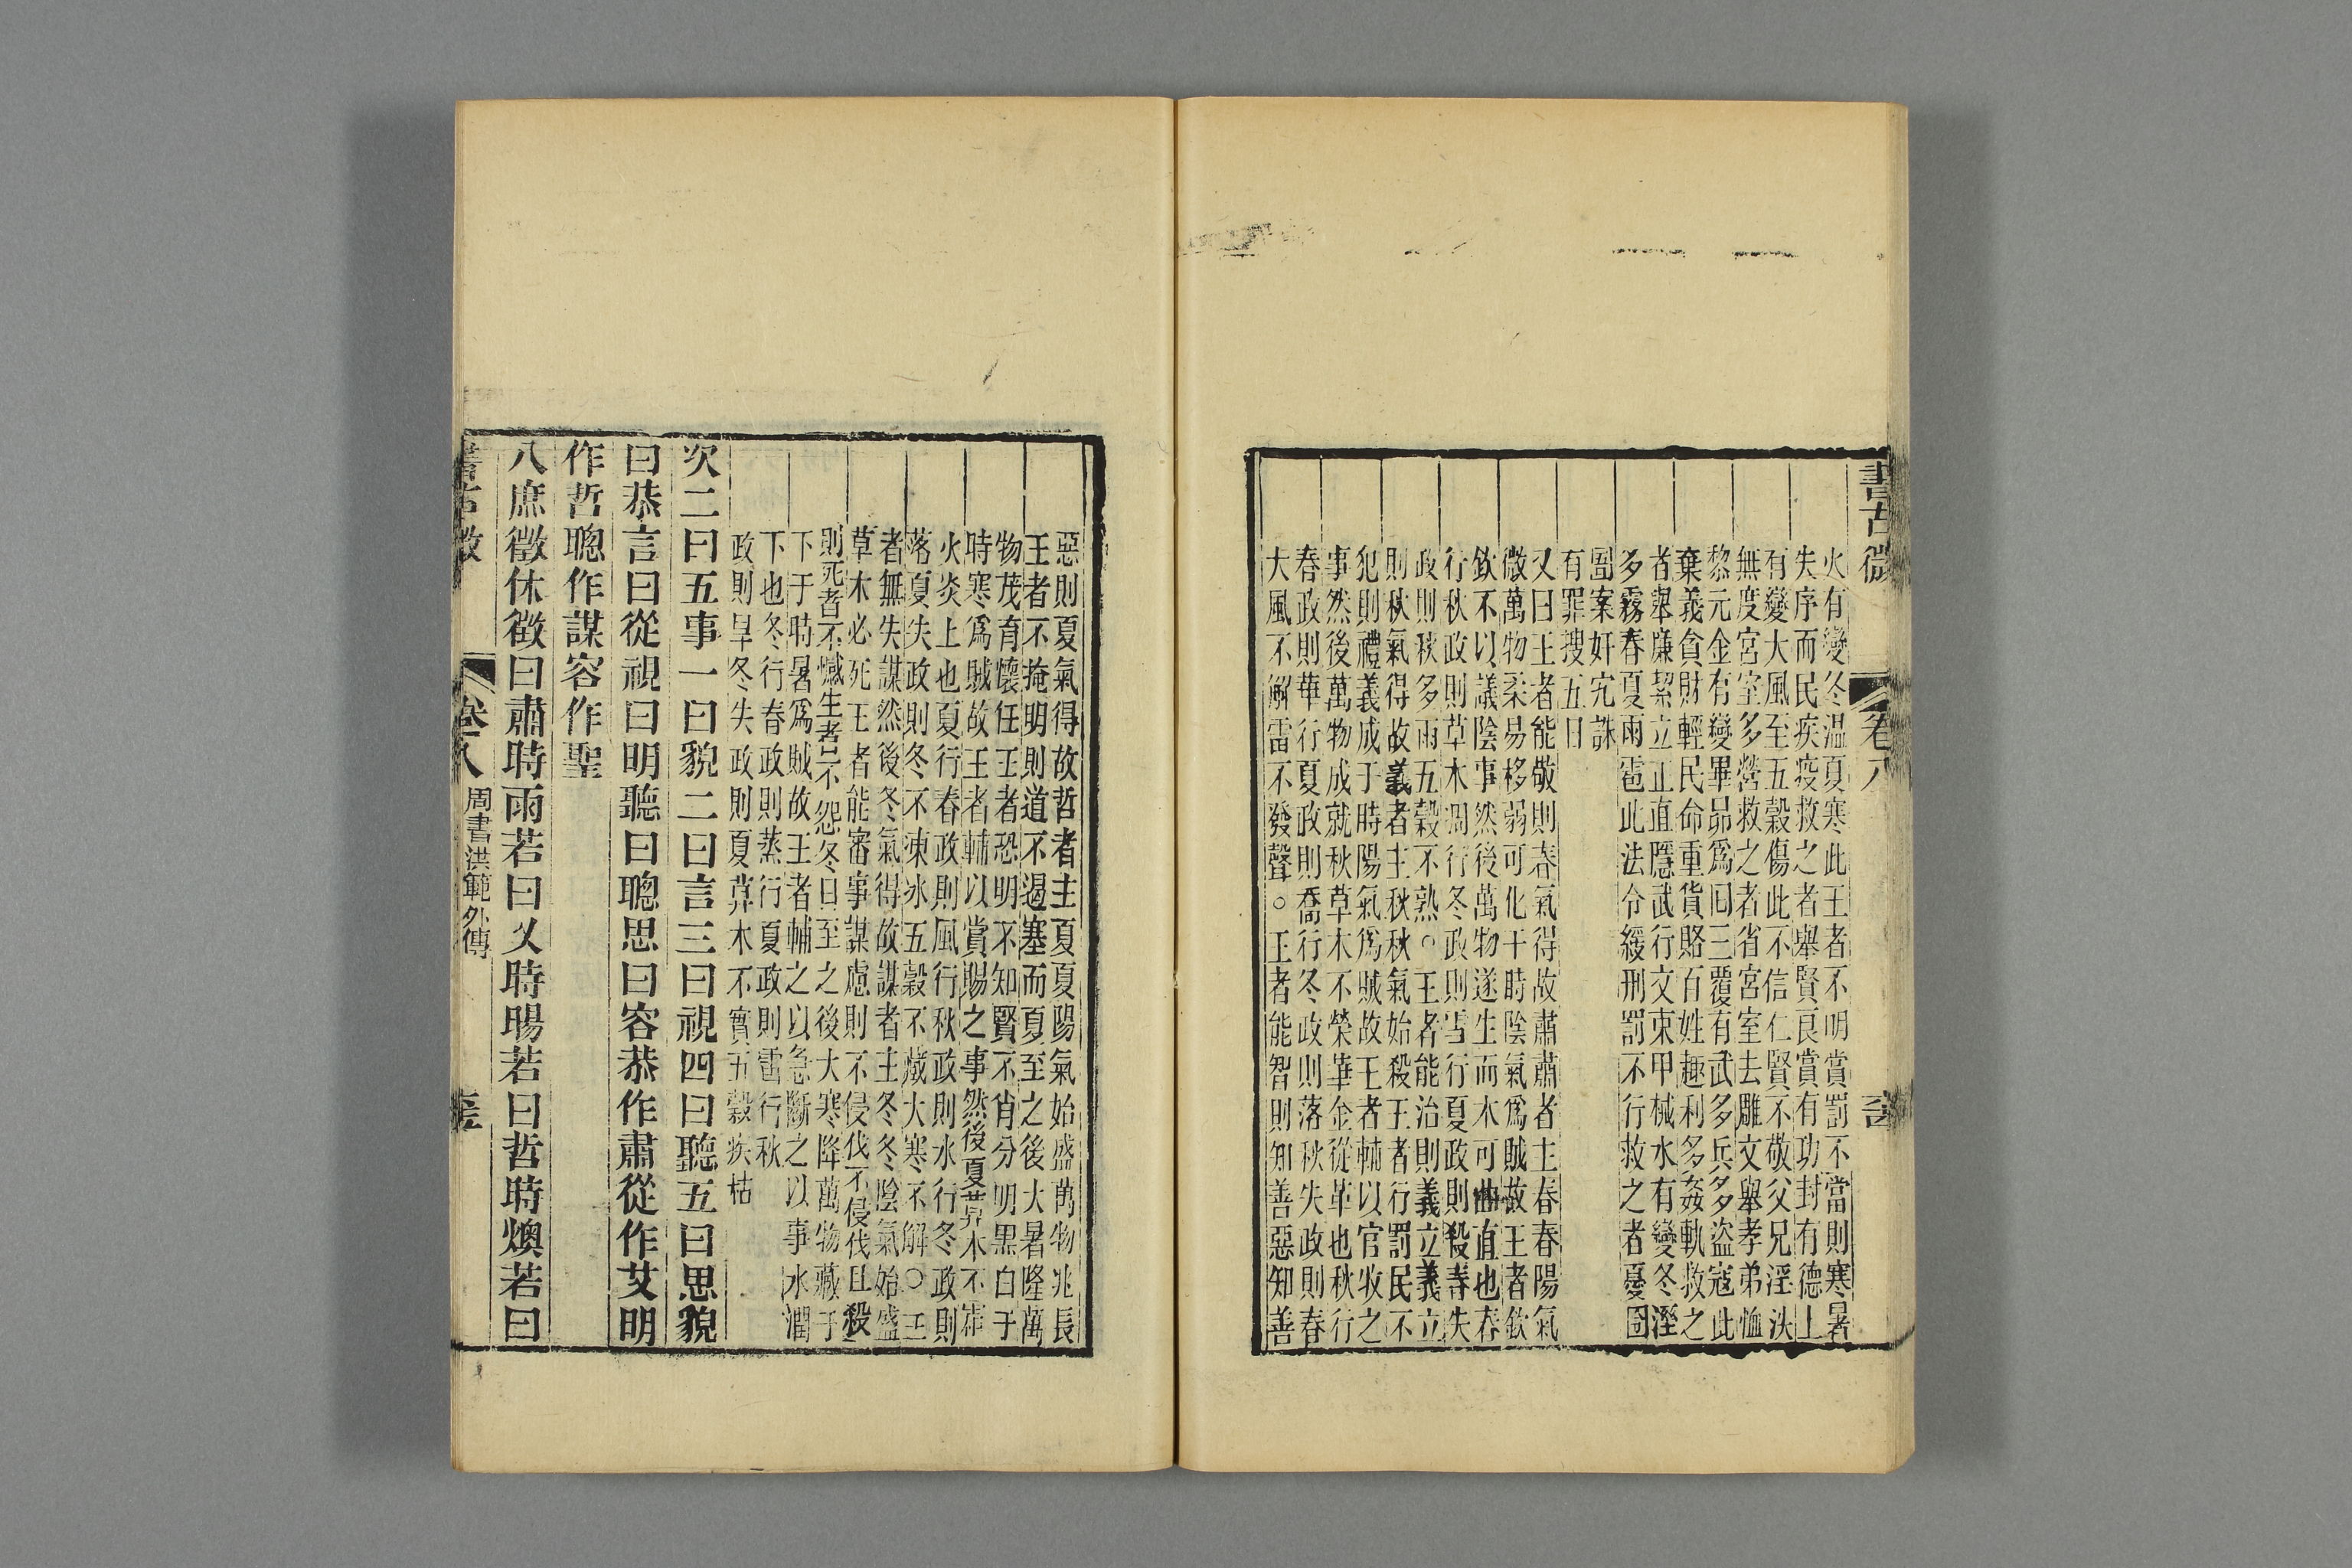 書古微
卷八
火有變冬温夏寒此王者不明賞罰不當則寒暑
失序而民疾疫救之者舉賢良賞有功封有德上
有變大風至五穀傷此不信仁賢不敬父兄淫泆
無度宮室多營救之者省宮室去雕文舉孝弟恤
黎元金有變畢昴爲囘三覆有武多兵多盜寇此
棄義貪財輕民命重貨賂百姓趣利多姦軌救之
者舉廉絜立正直隱武行文束甲械水有變冬溼
多霧春夏雨雹此法令緩刑罰不行救之者憂囹
圄案奸宄誅
有罪搜五日
又曰王者能敬則春氣得故肅肅者主春春陽氣
微萬物柔易移弱可化干時陰氣爲賊故王者欽
欽不以議陰事然後萬物遂生而木可曲直也春
行秋政則草木凋行冬政則雪行夏政則殺春失
政則秋多雨五穀不熟○王者能治則義立義立
則秋氣得故義者主秋秋氣始殺王者行罰民不
犯則禮義成于時陽氣爲賊故王者輔以官收之
事然後萬物成就秋草木不榮華金從革也秋行
春政則華行夏政則喬行冬政則落秋失政則春
大風不解雷不發聲○王者能智則知善惡知善
惡則夏氣得故哲者主夏夏陽氣始盛萬物兆長
王者不掩明則道不遏塞而夏至之後大暑隆萬
物茂育懷任王者恐明不知賢不肖分明黑白于
時寒爲賊故王者輔以賞賜之事然後夏草木不霜
火炎上也夏行春政則風行秋政則水行冬政則
落夏失政則冬不凍冰五穀不藏大寒不解○王
者無失謀然後冬氣得故謀者主冬冬陰氣始盛
草木必死王者能審事謀慮則不侵伐不侵伐且殺
則死者不憾生者不怨冬日至之後大寒降萬物藏于
下于時暑爲賊故王者輔之以急斷之以事水潤
下也冬行春政則蒸行夏政則雷行秋
政則旱冬失政則夏草木不實五穀疾枯
次二曰五事一曰貌二曰言三曰視四曰聽五曰思貌
曰恭言曰從視曰明聽曰聰思曰容恭作肅從作艾明
作哲聰作謀容作聖
八庶徵休徵曰肅時雨若曰乂時暘若曰哲時燠若曰
書古微
卷八
周書洪範外傳